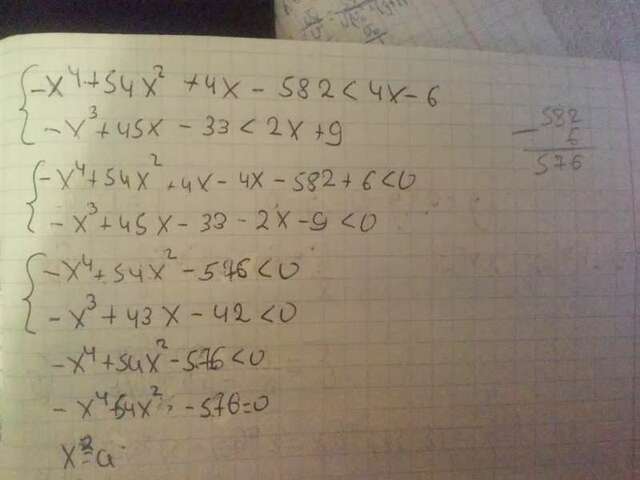 -x⁴+54x²+4x-582<4x-6
-x³+45x-33<2x+9
582
-6
576
-x⁴+54x²+4x-4x-582+6<0
-x³+45x-33-2x-9<0
-x⁴+54x²-576<0
-x³+43x-42<0
-x⁴+54x²-576<0
-x⁴+54x²-576=0
x²=a